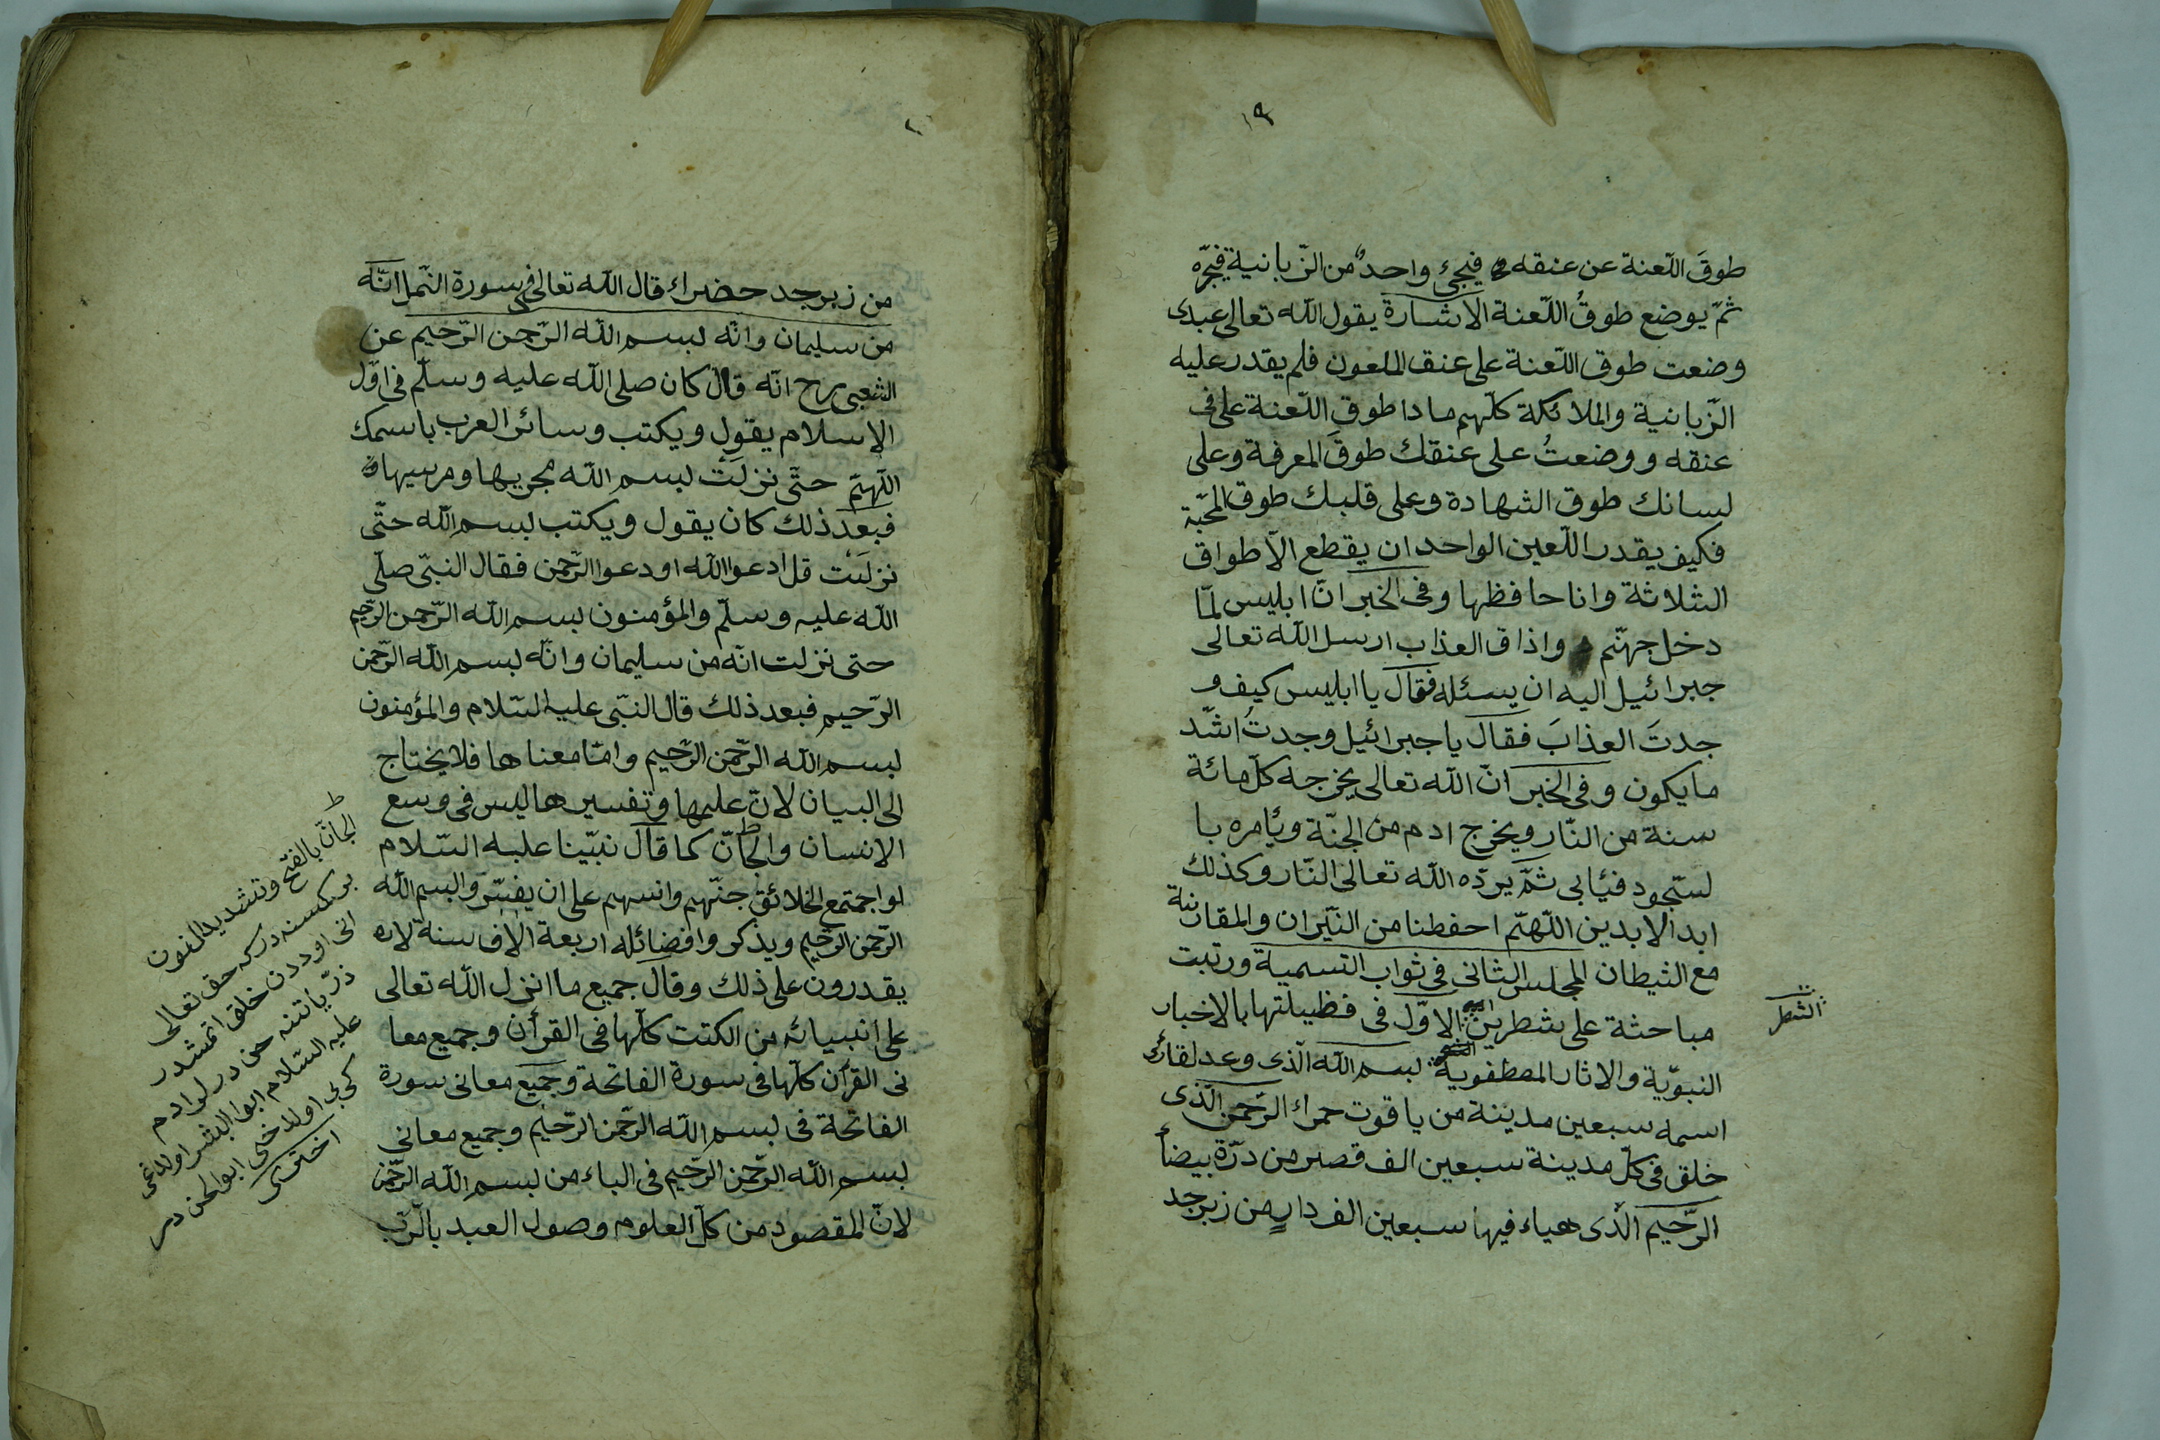 ١٩
طوقَ اللّعنة عن عنقه فيجئ واحدٌ من الزّبانية فيجرّه
ثمّ يوضع طوقُ اللّعنة الاشارة يقول الله تعالى عبدى
وضعت طوق اللّعنة على عنق الملعون فلم يقدر عليه
الزّبانية والملائكة كلّهم مادا طوق اللّعنة على فى
عنقه ووضعتُ على عنقك طوقَ المعرفة وعلى
لسانك طوق الشهادة وعلى قلبك طوق المحبّة
فكيف يقدر اللّعين الواحد ان يقطع الاَطواق
الثلاثة وانا حافظها وفى الخبر انّ ابليس لمّا
دخل جهنّم واذاق العذاب ارسل الله تعالى
جبرائيل اليه ان يسئله فقال يا ابليس كيف و
جدتَ العذابَ فقال يا جبرائيل وجدتُ اشدّ
ما يكون وفى الخبر انّ الله تعالى يخرجه كلّ مائة
سنة من النّار ويخرج ادم من الجنّة ويأمره با
لسّجود فيأبى ثمّ يردّه الله تعالى النّار وكذلك
ابد الابدين اللّهمّ احفطنا من النّيران والمقارنة
مع الشيطان المجلس الثانى فى ثواب التسمية ورتبت
مباحثة على شطرين الاوّل فى فظيلتها بالاخبار
الشطر
النبوّية والاثار المصطفوية بسم الله الّذى وعد لقارئ
اسمه سبعين مدينة من ياقوت حمراء الرّحمن الّذى
خلق فى كلّ مدينة سبعين الف قصر من درّة بيضأ
الرّحيم الّذى هياء فيها سبعين الف دارٍ من زبرجد
من زبرجد خضراء قال الله تعالى فى سورة النّمل انّه
من سليمان وانّه بسم الله الرّحمن الرّحيم عن
الشعبى رح انّه قال كان صلى الله عليه وسلّم فى اوّل
الاسلام يقول ويكتب وسائر العرب باسمك
اللّهمّ حتّى نزلَت بسم الله مجريها ومرسيها
فبعد ذلك كان يقول ويكتب بسم الله حتّى
نزلَت قل ادعوا الله او ادعوا الرّحمن فقال النبىّ صلّى
الله عليه وسلّم والمؤمنون بسم الله الرّحمن الرّحيم
حتى نزلت انّه من سليمان وانّه بسم الله الرّحمن
الرّحيم فبعد ذلك قال النبّى عليه السّلام والمؤمنون
بسم الله الرّحمن الرّحيم وامّا معناها فلا يحتاج
الى البيان لانّ علمها وتفسيرها ليس فى وسع
الانسان والجانّ كما قال نبيّنا عليه السّلام
لو اجتمع الخلائق جنّهم وانسهم على ان يفسّروا بسم الله
الرّحمن الرّحيم ويذكروا فضائله اربعة الاف سنة لا
يقدرون على ذلك وقال جميع ما انزل الله تعالى
على انبيائه من الكتب كلّها فى القرأن وجميع معا
نى القرأن كلّها فى سورة الفاتحة وجميع معانى سورة
الفاتحة فى بسم الله الرّحمن الرّحيم وجميع معانى
بسم الله الرّحمن الرّحيم فى الباء من بسم الله الرّحمن
لانّ المقصود من كلّ العلوم وصول العبد بالرّب
الجانّ بالفتح وتشديد النون
بر كمسنه در كه حق تعالى
انى اودن خلق اتمشدر
ذرّياتنه جن درلر ادم
عليه السّلام ابو البشر اولدغى
كبى اولدخى ابو الجن در
اخترى